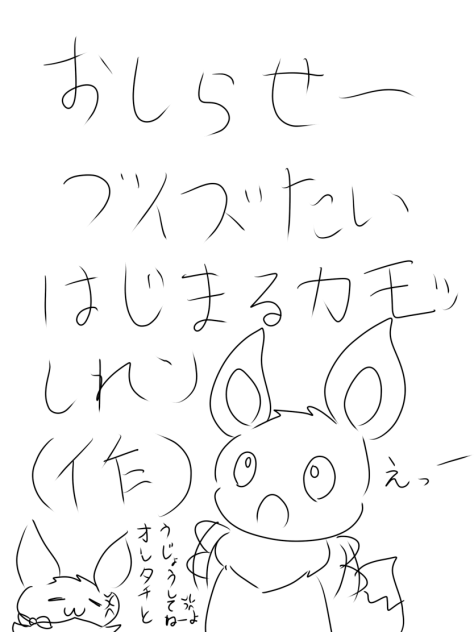 おしらせー
ブイズたい
はじまるカモッ
しれン
(作)
えっー
オレタチと
うじょうしてねーよ